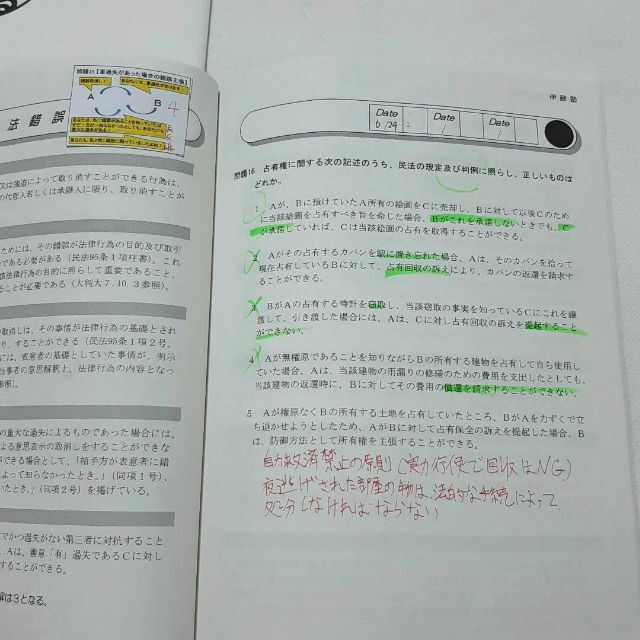 問題15【重過失があった場合の錯誤主張】
A
B
4
法 錯 誤
又は強迫によって取り消すことができる行為は、
の代理人若しくは承継人に限り、取り消すことが
ためには、その錯誤が法律行為の目的及び取引
である必要がある（民法95条1項柱書）。これ
法律行為の目的に照らして重要であること、
ことが必要である（大判大7.10.3参照）。
取消しは、その事情が法律行為の基礎とされ
り、することができる（民法95条1項2号、
には、表意者の基礎としていた事情が、明示
当事者の意思解釈上、法律行為の内容となっ
参照）。
の重大な過失によるものであった場合には、
よる意思表示の取消しをすることができな
ができる場合として、「相手方が表意者に錯
よって知らなかったとき。」（同項1号）、
いたとき。」（同項2号）を掲げている。
でかつ過失がない第三者に対抗すること
、Aは、善意「有」過失であるCに対し
ができる。
解は3となる。
伊藤塾
Date Date Date
6/29 / /
問題16 占有権に関する次の記述のうち、民法の規定及び判例に照らし、正しいものは
どれか。
1 Aが、Bに預けていたA所有の絵画をCに売却し、Bに対して以後Cのため
に当該絵画を占有すべき旨を命じた場合、Bがこれを承諾しないときでも、C
が承諾していれば、Cは当該絵画の占有を取得することができる。
2 Aがその占有するカバンを駅に置き忘れた場合、Aは、そのカバンを拾って
現在占有しているBに対して、占有回収の訴えにより、カバンの返還を請求す
ることができる。
3 BがAの占有する時計を窃取し、当該窃取の事実を知っているCにこれを譲
渡して、引き渡した場合には、Aは、Cに対し占有回収の訴えを提起すること
ができない。
4 Aが無権原であることを知りながらBの所有する建物を占有して自ら使用し
ていた場合、Aは、当該建物の雨漏りの修繕のための費用を支出したとしても、
当該建物の返還時に、Bに対してその費用の償還を請求することができない。
5 Aが権原なくBの所有する土地を占有していたところ、BがAを力ずくで立
ち退かせようとしたため、AがBに対して占有保全の訴えを提起した場合、B
は、防御方法として所有権を主張することができる。
自力救済禁止の原則（実力行使で回収はNG）
夜逃げされた部屋の物は、法的な手続によって
処分しなければならない